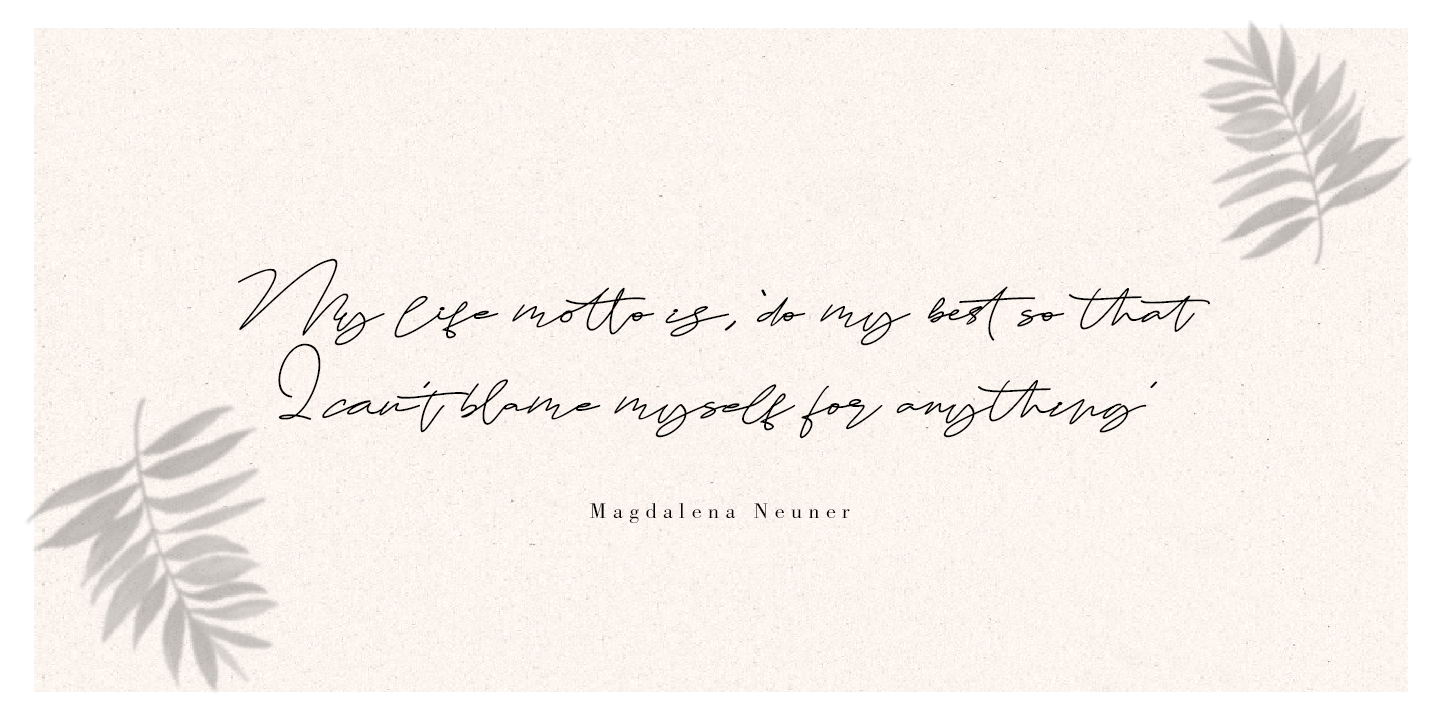 My life motto is, 'do my best so that
I can't blame myself for anything'
Magdalena Neuner